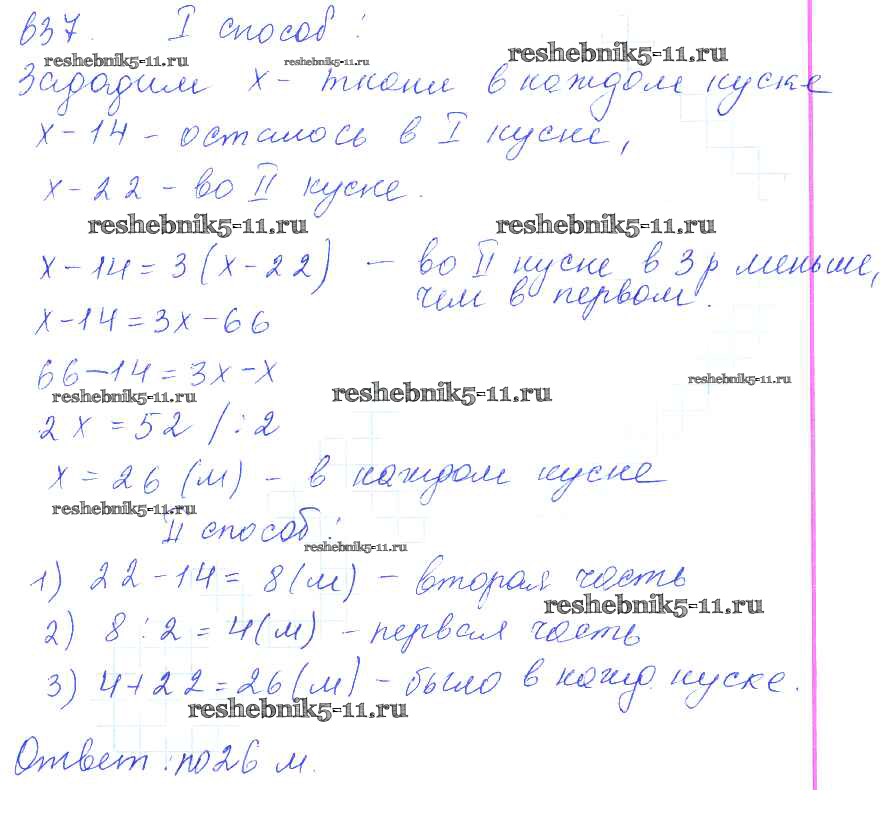 637. I способ:
reshebnik5-11.ru reshebnik5-11.ru reshebnik5-11.ru
Зададим x - ткани в каждом куске
x - 14 - осталось в I куске,
x - 22 - во II куске.
reshebnik5-11.ru reshebnik5-11.ru
x - 14 = 3 (x - 22) - во II куске в 3 р меньше,
чем в первом.
x - 14 = 3x - 66
66 - 14 = 3x - x
reshebnik5-11.ru reshebnik5-11.ru reshebnik5-11.ru
2x = 52 / : 2
x = 26 (м) - в каждом куске
reshebnik5-11.ru
II способ:
reshebnik5-11.ru
1) 22 - 14 = 8 (м) - вторая часть
reshebnik5-11.ru
2) 8 : 2 = 4 (м) - первая часть
3) 4 + 22 = 26 (м) - было в кажд. куске.
reshebnik5-11.ru
Ответ: по 26 м.